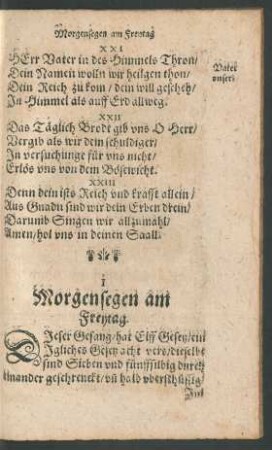 Morgensegen am Freytag
XXI
HErr Vater in des Himmels Thron/
Dein Namen wolln wir heilgen thon/
Dein Reich zu kom/ dem will gescheh/
In Himmel als auff Erd allweg.
Vater
unser.
XXII
Das Täglich Brodt gib vns O Herr/
Vergib als wir dem schuldiger/
In versuchunge für vns nicht/
Erlös vns von dem Bösewicht.
XXIII
Denn dein ists Reich vnd krafft allein/
Aus Gnadn sind wir dein Erben drein/
Darumb Singen wir allzumahl/
Amen/ hol vns in deinen Saall.
I
Morgensegen am
Freytag.
DIeser Gesang/ hat Eilff Gesetz/ ein
Igliches Gesetz acht verß/ dieselbe
sind Sieben vnd fünffsilbig durch
einander geschrenckt/ vñ hald vberschüßig/